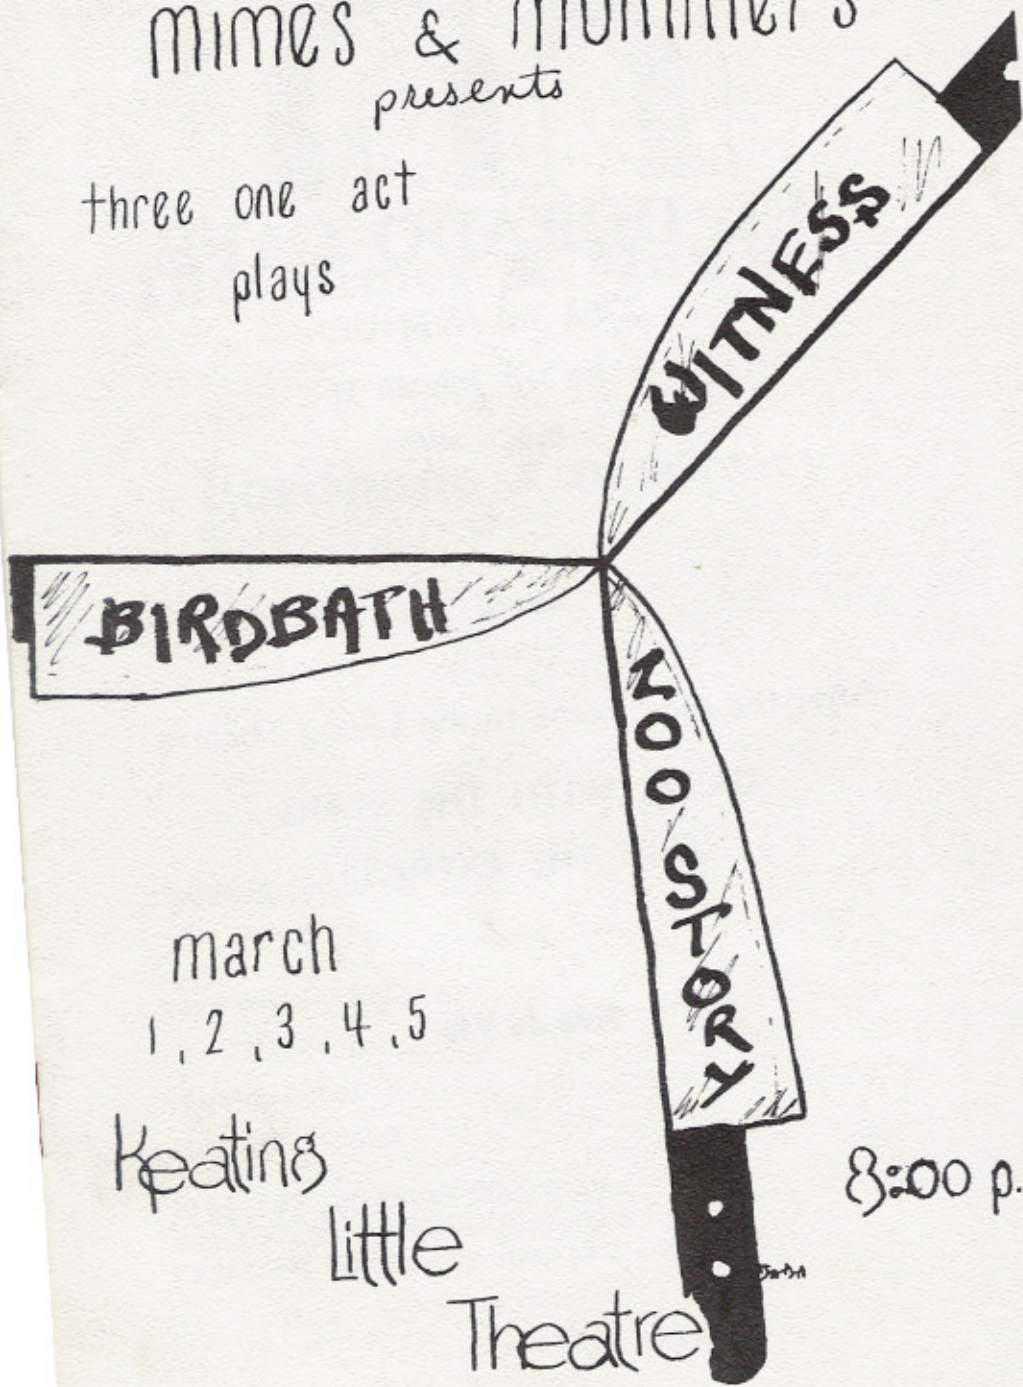 mimes & mummers
presents
three one act
plays
WITNESS
BIRDBATH
ZOO STORY
march
1, 2, 3, 4, 5
Keating
Little
Theatre
8:00 p.